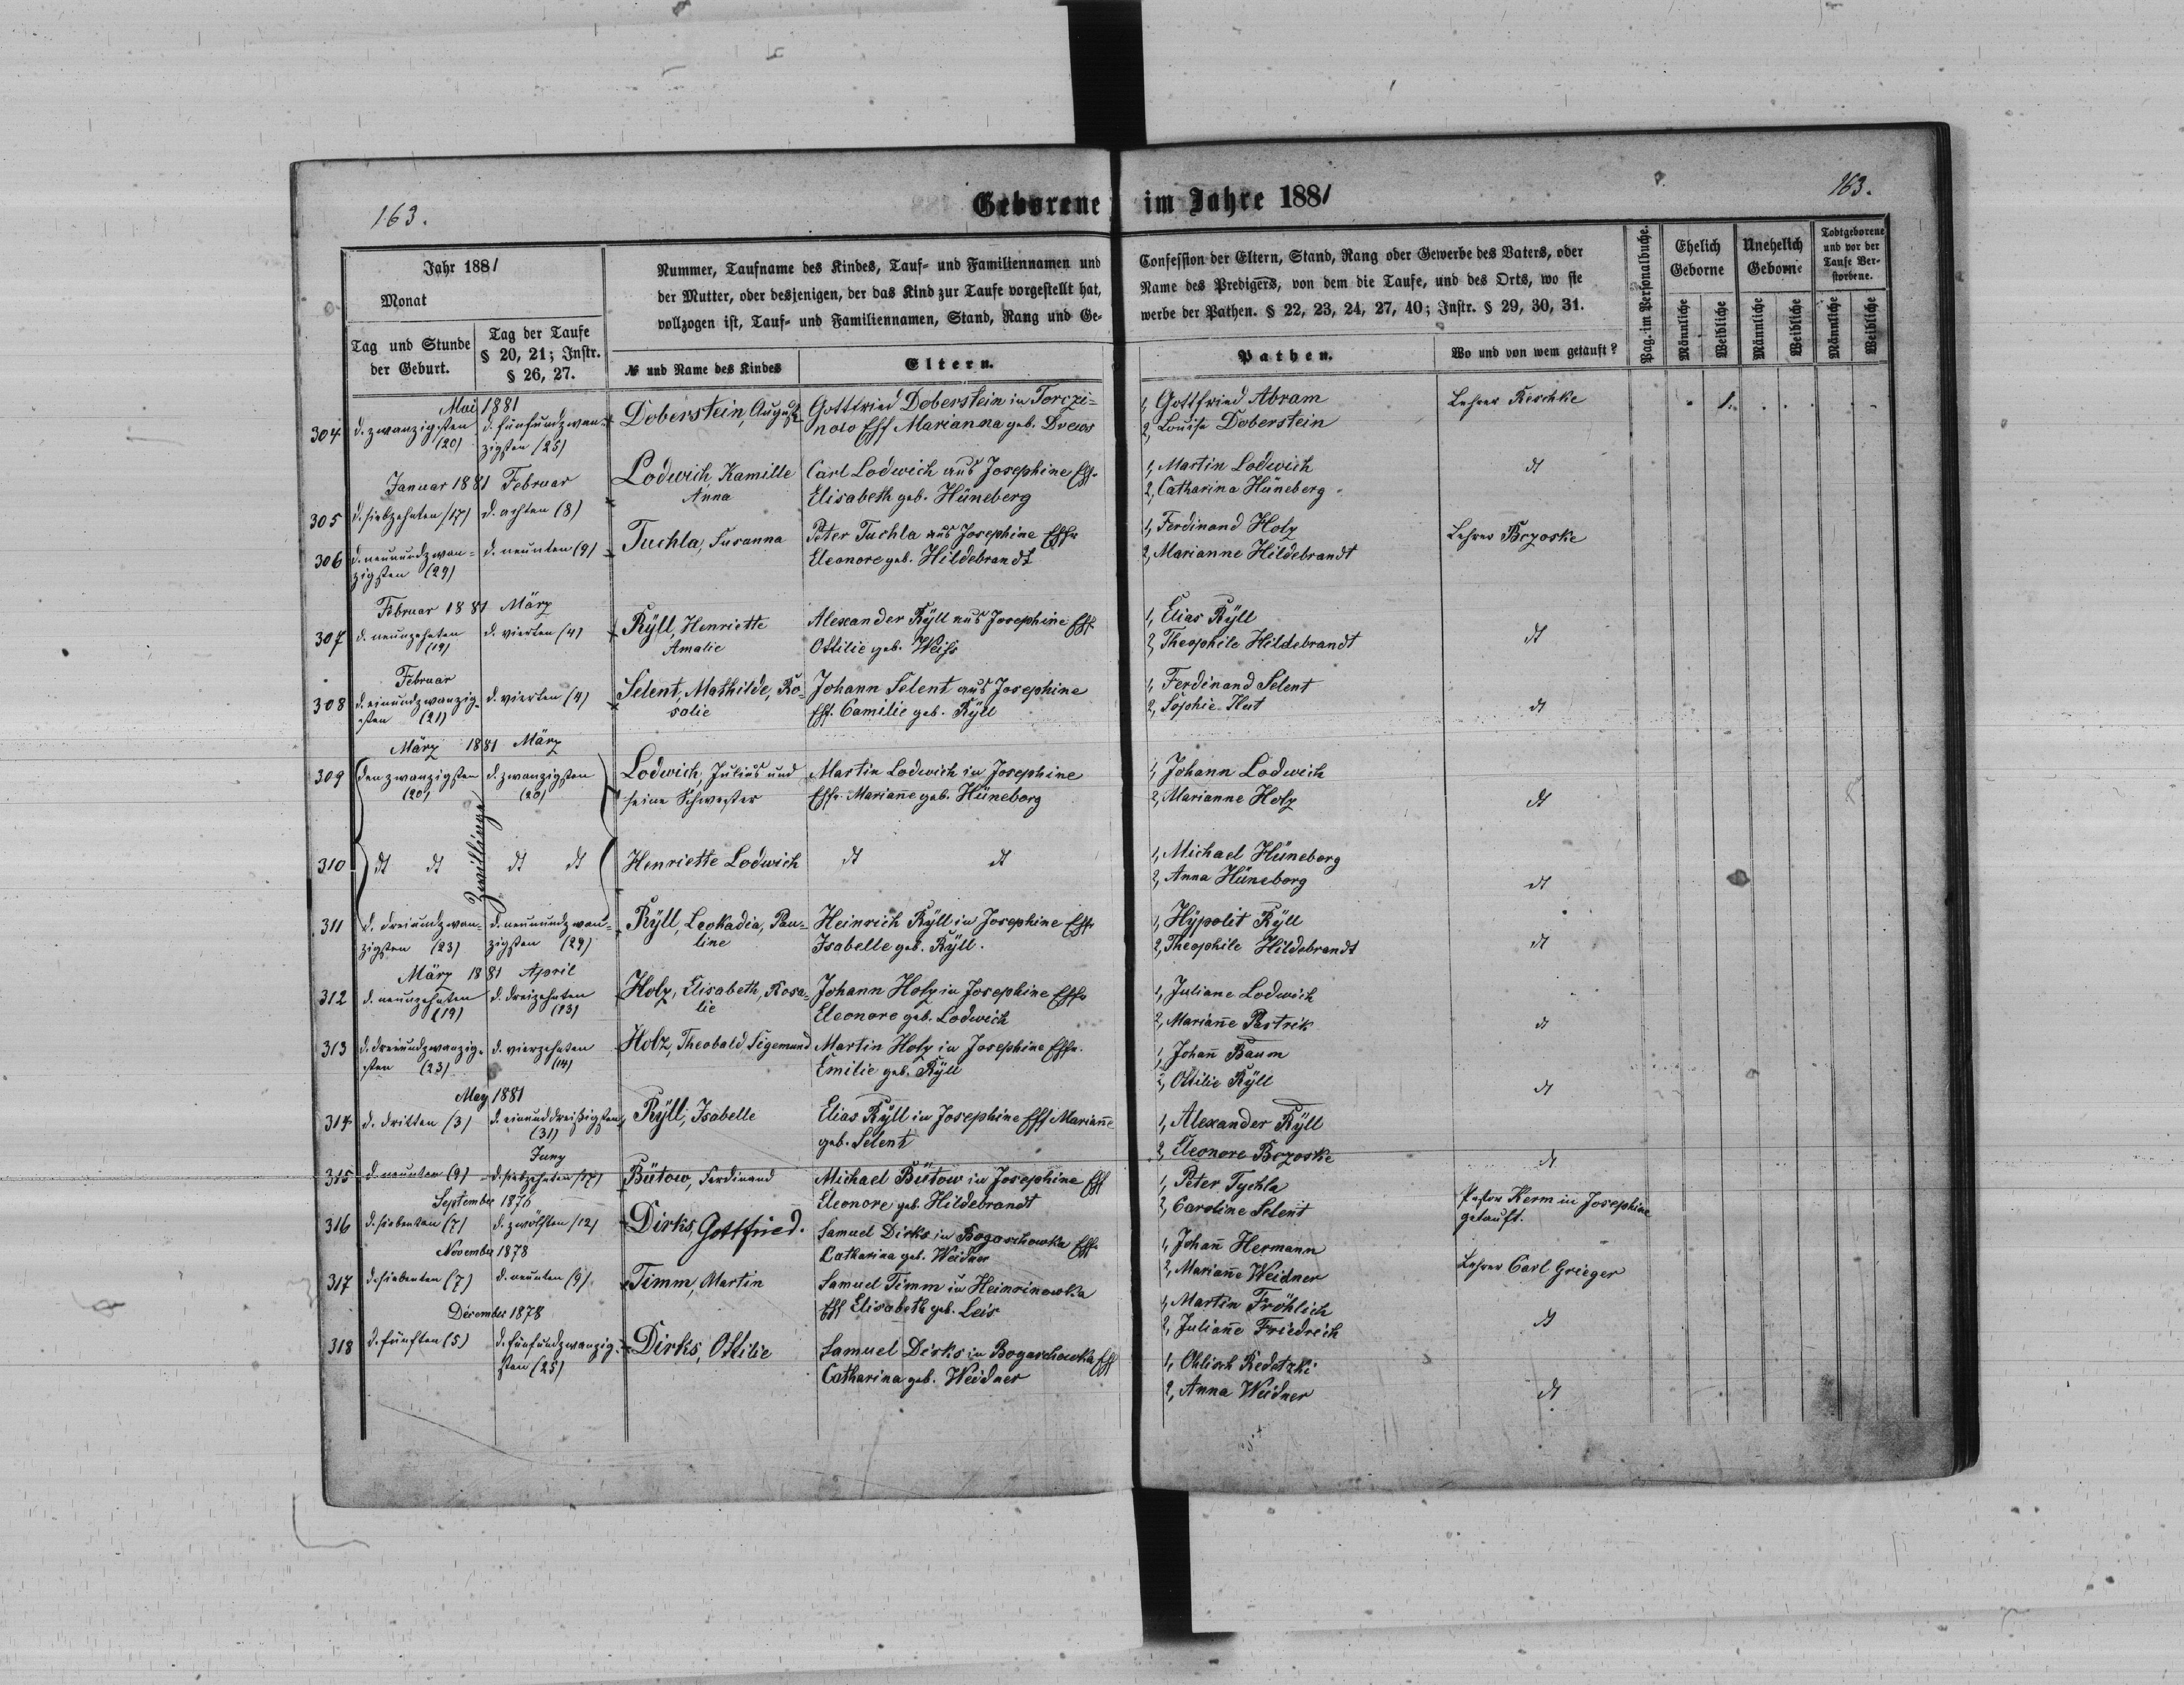 163.
Geborene im Jahre 1881
163.
Jahr 1881
Monat
Tag und Stunde der Geburt.
Tag der Taufe § 20, 21; Instr. § 26, 27.
Nummer, Taufname des Kindes, Tauf- und Familiennamen und
der Mutter, oder desjenigen, der das Kind zur Taufe vorgestellt hat,
vollzogen ist, Tauf- und Familiennamen, Stand, Rang und Ge-
№ und Name des Kindes
Eltern.
Confession der Eltern, Stand, Rang oder Gewerbe des Vaters, oder
Name des Predigers, von dem die Taufe, und des Orts, wo sie
werbe der Pathen. § 22, 23, 24, 27, 40; Instr. § 29, 30, 31.
Pathen.
Wo und von wem getauft?
Pag. im Personalbuche.
Ehelich Geborne
Unehelich Geborne
Todtgeborene und vor der Taufe Verstorbene.
Männliche
Weibliche
Männliche
Weibliche
Männliche
Weibliche
Mai 1881
304 d. zwanzigsten (20) d. fünfundzwanzigsten (25) Doberstein, August
Gottfried Doberstein in Torczi-
now Eff Marianna geb. Drews
1, Gottfried Abram
2, Louise Doberstein
Lehrer Reschke
1.
Januar 1881 Februar
305 d. siebzehnten (17) d. achten (8) Lodwich, Kamille
Anna
Carl Lodwich aus Josephine Eff.
Elisabeth geb. Hüneberg
1, Martin Lodwich
2, Catharina Hüneberg
dt
306 d. neunundzwan-
zigsten (29)
d. neunten (9) Tuchla, Susanna
Peter Tuchla aus Josephine Effr
Eleonore geb. Hildebrandt
1, Ferdinand Holz
2, Marianne Hildebrandt
Lehrer Bczoske
Februar 1881 März
307 d. neunzehnten (19) d. vierten (4) Ryll, Henriette
Amalie
Alexander Ryll aus Josephine Eff
Ottilie geb. Weiss
1, Elias Ryll
2, Theophile Hildebrandt
dt
Februar
308 d. einundzwanzig-
sten (21)
d. vierten (4) Selent, Mathilde, Ro-
salie
Johann Selent aus Josephine
Eff. Camilie geb. Ryll
1, Ferdinand Selent
2, Sophie Hut
dt
März 1881 März
309 den zwanzigsten (20) d. zwanzigsten (20) Lodwich, Julius und
seine Schwester
Zwillinge
Martin Lodwich in Josephine
Effr. Marian̄e geb. Hüneborg
1, Johann Lodwich
2, Marianne Holz
dt
310 dt dt dt dt Henriette Lodwich dt dt
1, Michael Hüneborg
2, Anna Hüneborg
dt
311 d. dreiundzwan-
zigsten (23)
d. neunundzwan-
zigsten (29)
Ryll, Leokadia, Pau-
line
Heinrich Ryll in Josephine Effr
Isabelle geb. Ryll.
1, Hypolit Ryll
2, Theophile Hildebrandt
dt
März 1881 April
312 d. neunzehnten (19) d. dreizehnten (13) Holz, Elisabeth, Rosa-
lie
Johann Holz in Josephine Effr
Eleonore geb. Lodwich
1, Juliane Lodwich
2, Marian̄e Pastrik
dt
313 d. dreiundzwanzig-
sten (23)
d. vierzehnten (14) Holz, Theobald Sigemund
Martin Holz in Josephine Effr.
Emilie geb. Ryll
1, Johan̄ Baum
2, Ottilie Ryll
dt
May 1881
314 d. dritten (3) d. einunddreißigsten (31) Ryll, Isabelle
Elias Ryll in Josephine Eff Marian̄e
geb. Selent
1, Alexander Ryll
2, Eleonore Bczoske
dt
Juny
315 d. neunten (9) d. siebzehnten (17) Bütow, Ferdinand
Michael Bütow in Josephine Eff
Eleonore geb. Hildebrandt
1, Peter Tychla
2, Caroline Selent
Pastor Kerm in Josephine
getauft.
September 1876
316 d. siebenten (7) d. zwölften (12) Dirks, Gottfried.
Samuel Dirks in Bogaschowka Effr
Catharina geb. Weidner
1, Johan̄ Hermann
2, Marian̄e Weidner
Lehrer Carl Grieger
November 1878
317 d. siebenten (7) d. neunten (9) Timm, Martin
Samuel Timm in Heinrinowka
Eff Elisabeth geb. Leis
1, Martin Fröhlich
2, Julian̄e Friedrich
dt
December 1878
318 d. fünften (5) d. fünfundzwanzig-
sten (25)
Dirks, Ottilie
Samuel Dirks in Bogaschowka Eff
Catharina geb. Weidner
1, Ohlisch Redetzki
2, Anna Weidner
dt